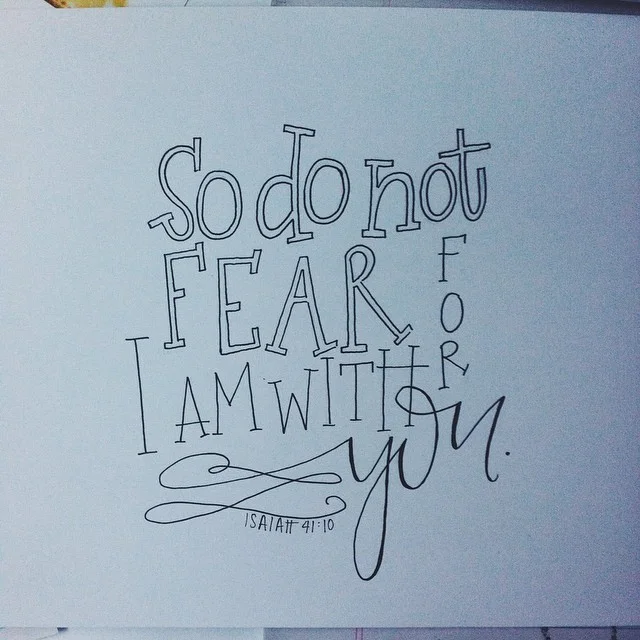 So do not
FEAR FOR
I AM WITH
you.
ISAIAH 41:10